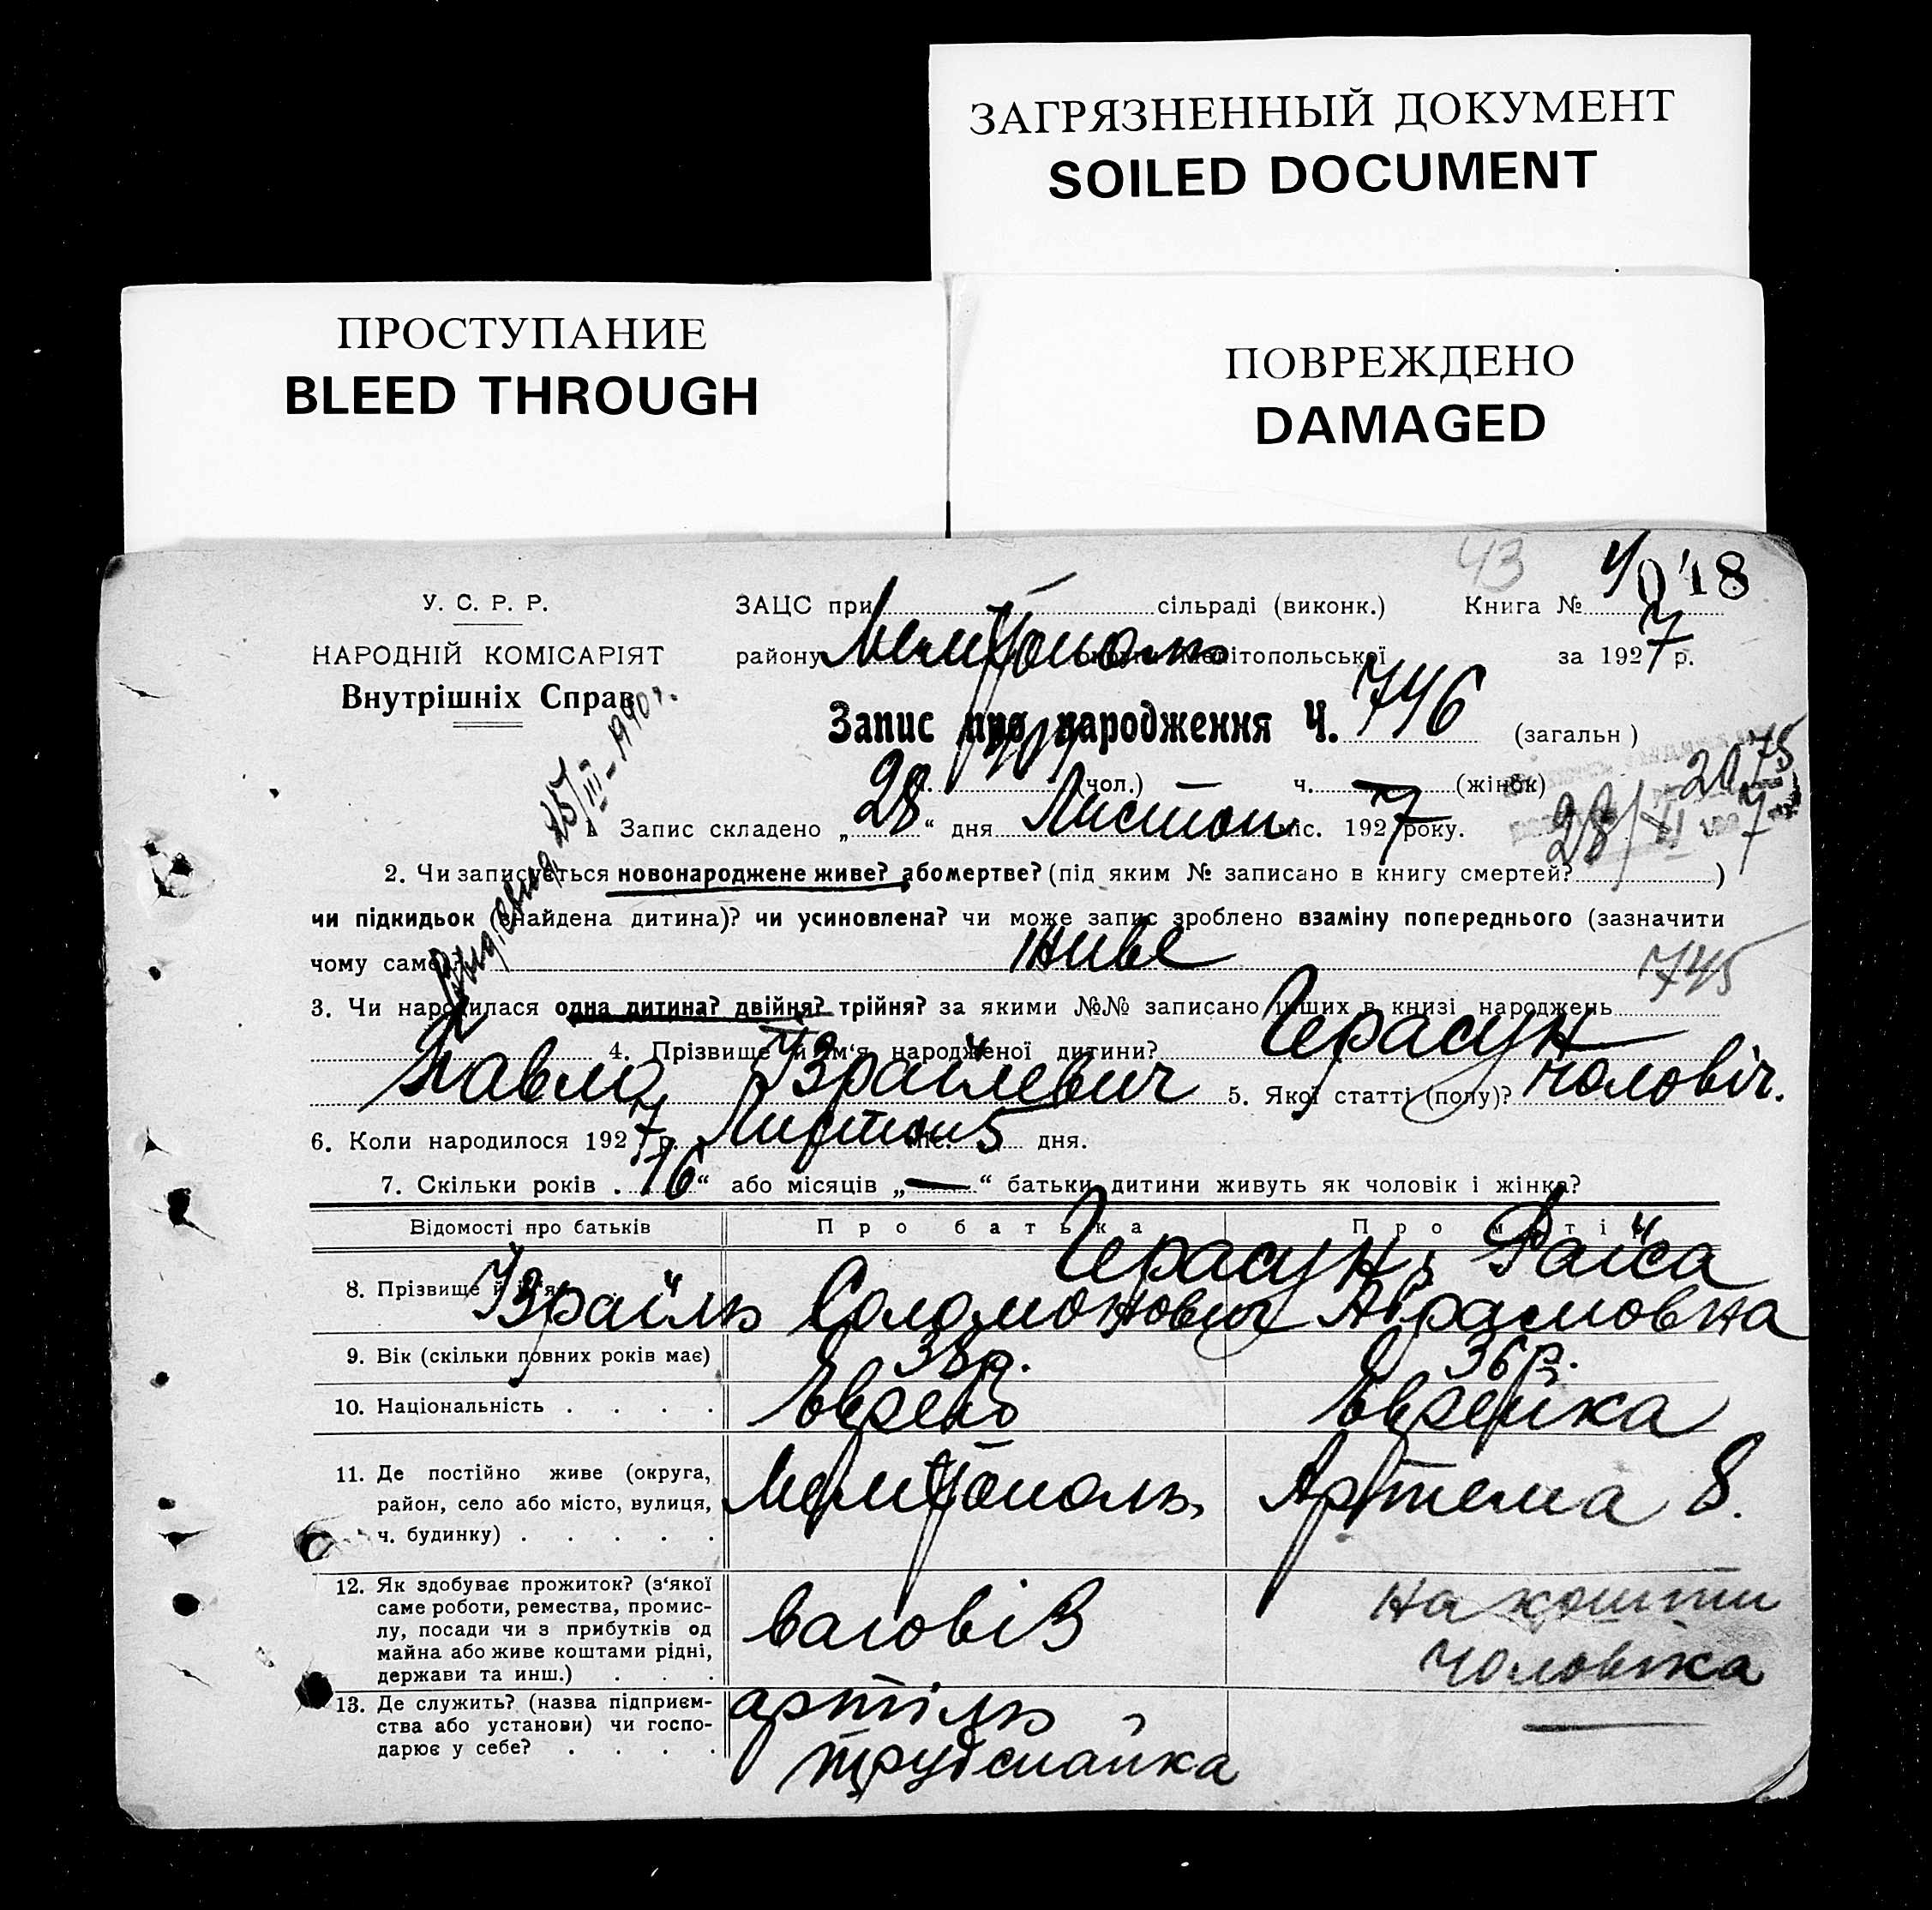 ЗАГРЯЗНЕННЫЙ ДОКУМЕНТ
SOILED DOCUMENT
ПРОСТУПАНИЕ
BLEED THROUGH
ПОВРЕЖДЕНО
DAMAGED
43
У. С. Р. Р.
НАРОДНІЙ КОМІСАРІЯТ
Внутрішніх Справ
ЗАЦС при сільраді (виконк.) Книга №
району Мелитополь Мелітопольської за 1927 р.
Запис про народження Ч. 746 (загальн)
(чол.) ч. — (жінок)
2075
Запис складено „28“ дня Листоп міс. 1927 року.
28/XI 7
2. Чи записується новонароджене живе? або мертве? (під яким № записано в книгу смертей? )
чи підкидьок (знайдена дитина)? чи усиновлена? чи може запис зроблено взаміну попереднього (зазначити
чому саме)? живе
745
3. Чи народилася одна дитина? двійня? трійня? за якими №№ записано інших в книзі народжень
4. Прізвище й ім‘я народженої дитини? Герасун
Павло Ізраїлевич 5. Якої статті (полу)? чоловіч.
6. Коли народилося 1927 р. Листоп міс. 5 дня.
7. Скільки років „16“ або місяців „—“ батьки дитини живуть як чоловік і жінка?
Відомості про батьків Про батька Про матір
8. Прізвище й ім‘я Герасун, Раїса
Ізраїль Соломонович Абрамовна
9. Вік (скільки повних років має) 38р. 36р.
10. Національність . . . . Еврей Еврейка
11. Де постійно живе (округа,
район, село або місто, вулиця, Мелитополь, Артема 8.
ч. будинку) . . . . .
12. Як здобуває прожиток? (з‘якої
саме роботи, ремества, промис-
лу, посади чи з прибутків од
майна або живе коштами рідні,
держави та инш.) . . .
ваговіз
на кошти
чоловіка
13. Де служить? (назва підприєм-
ства або установи) чи госпо-
дарює у себе? . . . .
артіль